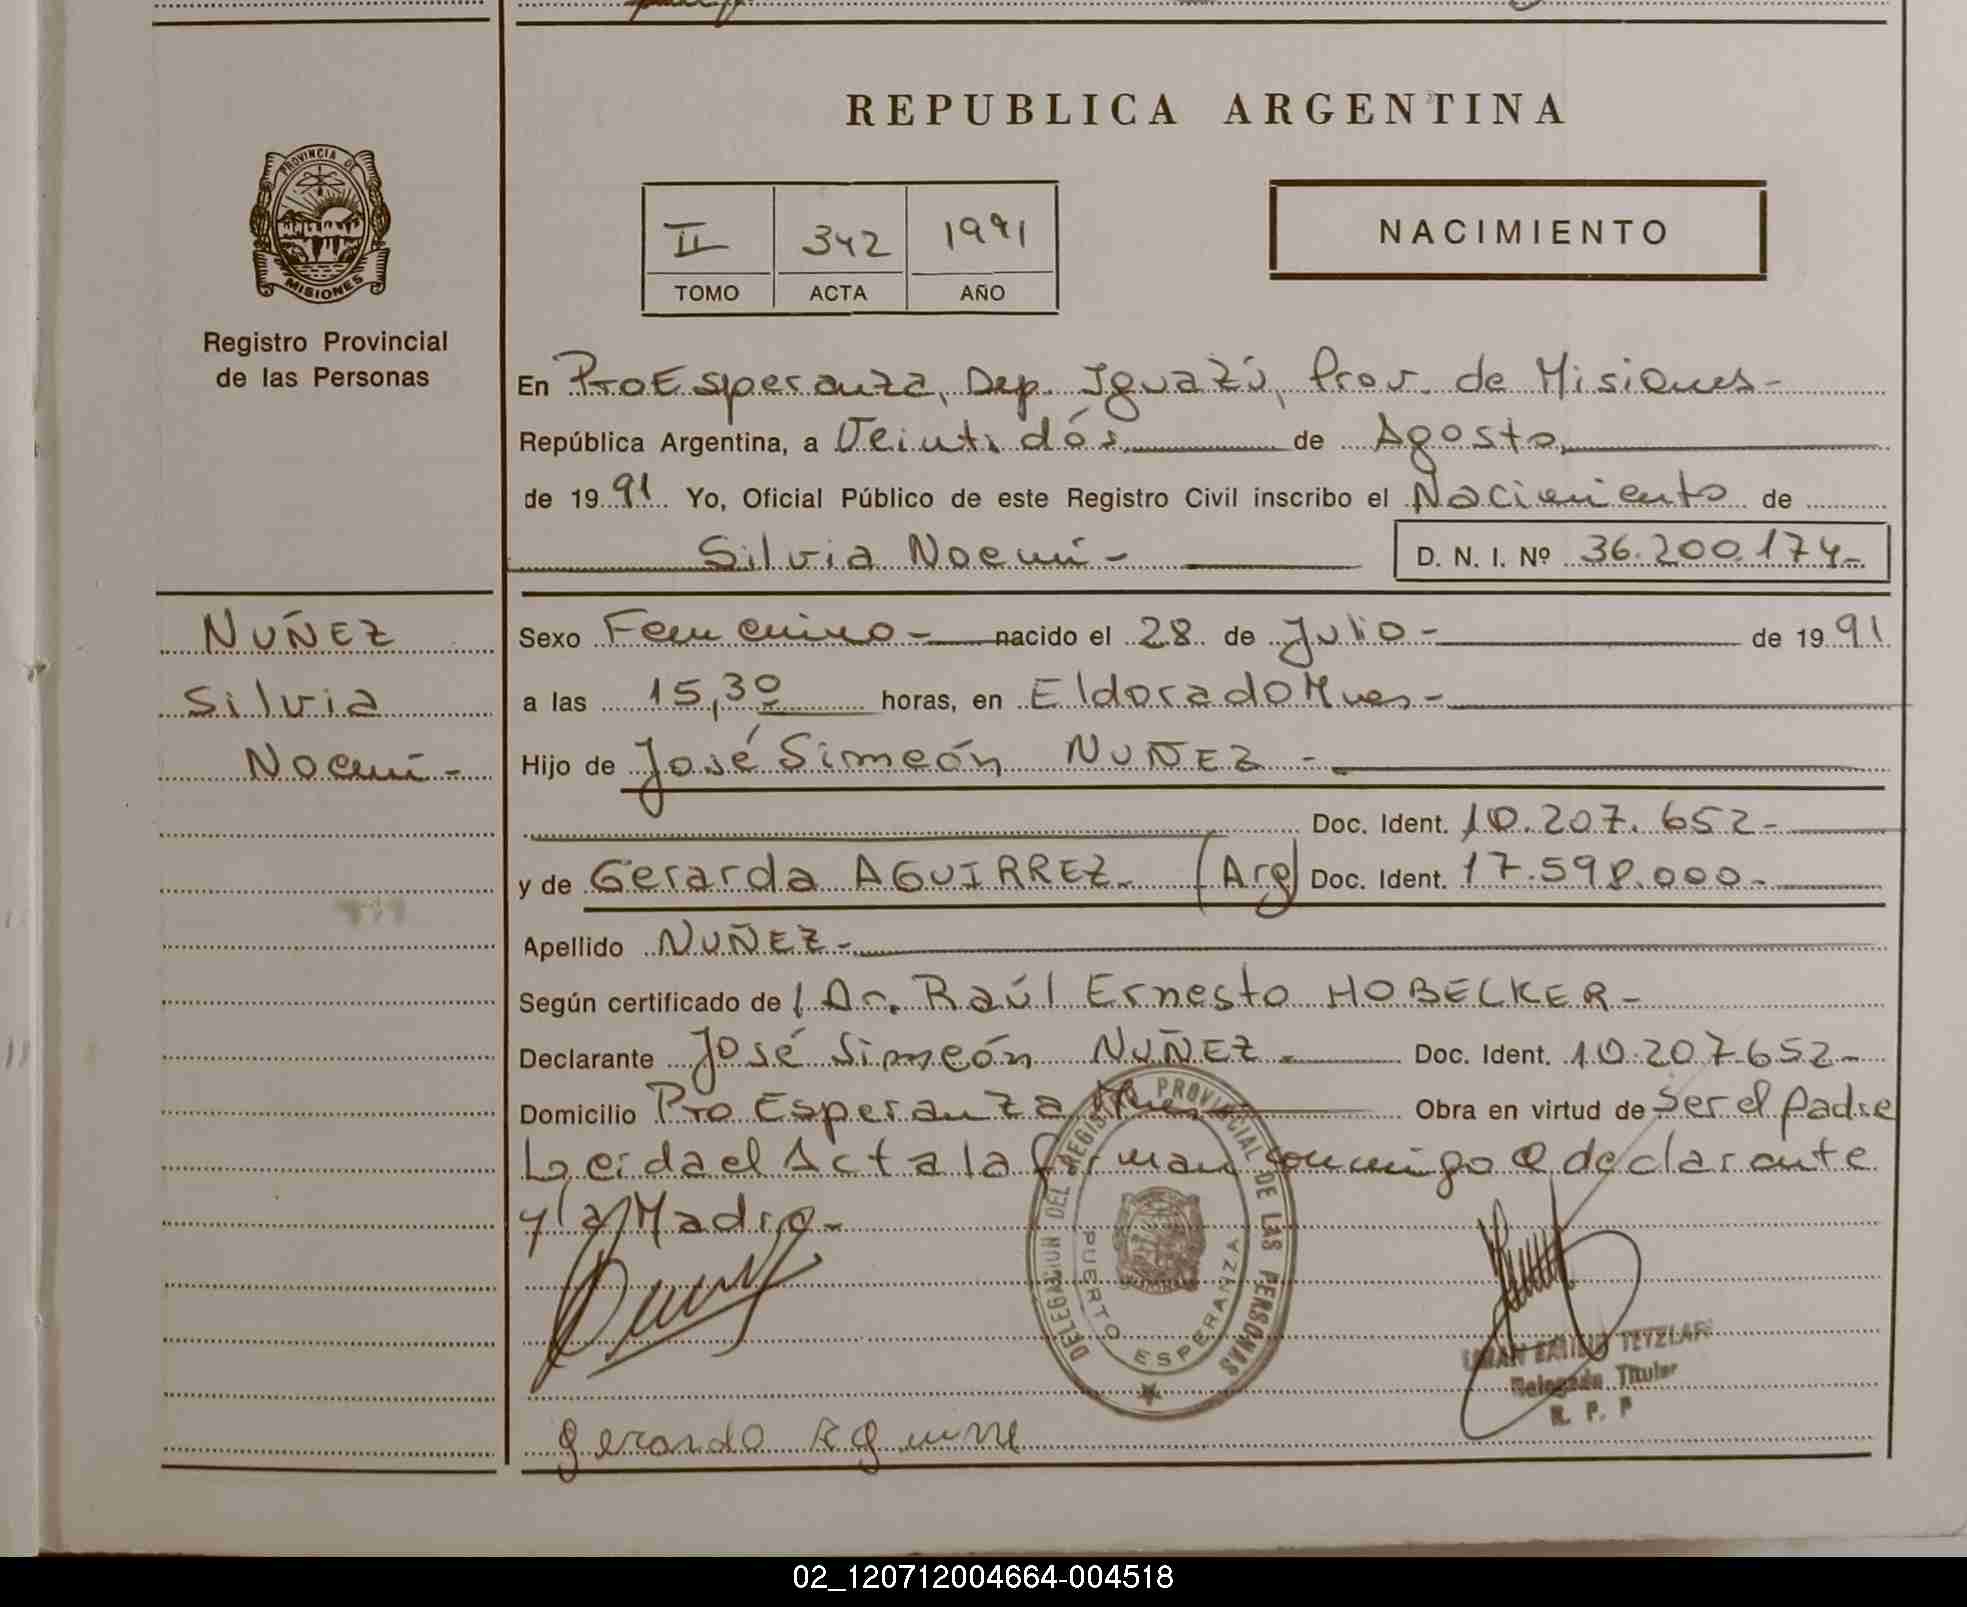 REPUBLICA ARGENTINA
PROVINCIA DE
MISIONES
Registro Provincial
de las Personas
II 342 1991
TOMO ACTA AÑO
NACIMIENTO
En Pto Esperanza, Dep. Iguazú, Prov. de Misiones-
República Argentina, a Veinti dós de Agosto
de 19 91 Yo, Oficial Público de este Registro Civil inscribo el Nacimiento de
Silvia Noemí-
D. N. I. Nº 36.200.174-
NUÑEZ
Silvia
Noemí-
Sexo Femenino- nacido el 28 de Julio- de 19 91
a las 15,30 horas, en Eldorado Mnes-
Hijo de José Simeón NUÑEZ -
Doc. Ident. 10.207.652-
y de Gerarda AGUIRREZ- (Arg) Doc. Ident. 17.598.000-
Apellido NUÑEZ-
Según certificado de l Dr. Raúl Ernesto HOBECKER-
Declarante José Simeón NUÑEZ- Doc. Ident. 10.207.652-
Domicilio Pto Esperanza Mnes- Obra en virtud de Ser el Padre
Leida el Acta la firman conmigo el declarante
y la Madre-
DELEGACION DEL REGISTRO PROVINCIAL DE LAS PERSONAS
PUERTO ESPERANZA
TETZLAFF
Delegado Titular
R. P. P
gerarda Aguirre
02_120712004664-004518